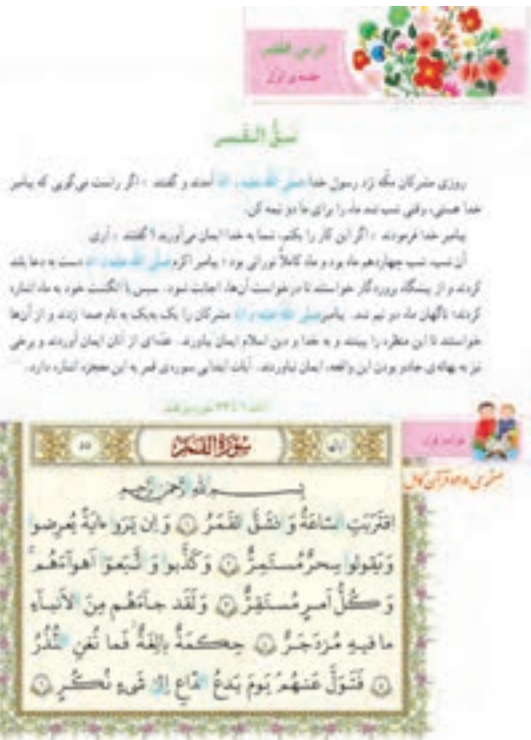 درس هفتم
جلسه‌ی اوّل
شقّ القمر
روزی مشرکان مکّه نزد رسول خدا صلی الله علیه و آله آمدند و گفتند: اگر راست می‌گویی که پیامبر
خدا هستی، وقتی شب شد ماه را برای ما دو نیمه کن.
پیامبر خدا فرمودند: اگر این کار را بکنم، شما به خدا ایمان می‌آورید؟ گفتند: آری.
آن شب، شب چهاردهم ماه بود و ماه کاملاً نورانی بود؛ پیامبر اکرم صلی الله علیه و آله دست به دعا بلند
کردند و از پیشگاه پروردگار خواستند تا درخواست آن‌ها، اجابت شود. سپس با انگشت خود به ماه اشاره
کردند؛ ناگهان ماه دو نیم شد. پیامبر صلی الله علیه و آله مشرکان را یک به‌یک به نام صدا زدند و از آن‌ها
خواستند تا این منظره را ببینند و به خدا و دین اسلام ایمان بیاورند. عدّه‌ای از آنان ایمان آوردند و برخی
نیز به بهانه‌ی جادو بودن این واقعه، ایمان نیاوردند. آیات ابتدایی سوره‌ی قمر به این معجزه اشاره دارد.
قرائت قرآن
سورة القمر
بسم الله الرحمن الرحیم
اقتَرَبَتِ السّاعَةُ وَ انشَقَّ القَمَرُ ۱ وَ إِن يَرَوا ءايَةً يُعرِضوا
وَ يَقولوا سِحرٌ مُستَمِرٌّ ۲ وَ كَذَّبوا وَ اتَّبَعوا أَهواءَهُم
وَ كُلُّ أَمرٍ مُستَقِرٌّ ۳ وَ لَقَد جاءَهُم مِنَ الأَنباءِ
ما فيهِ مُزدَجَرٌ ۴ حِكمَةٌ بالِغَةٌ فَما تُغنِ النُّذُرُ
۵ فَتَوَلَّ عَنهُم يَومَ يَدعُ الدّاعِ إِلىٰ شَىءٍ نُكُرٍ ۶